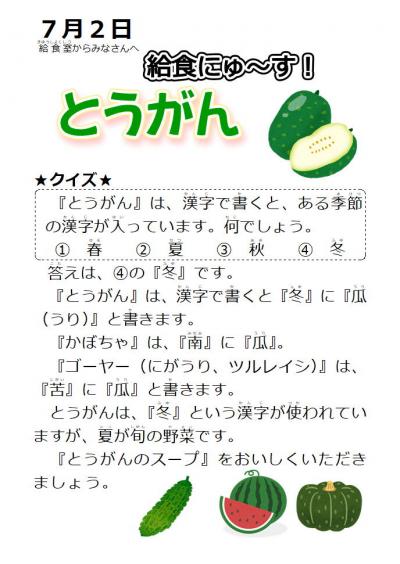 ７月２日
給食室からみなさんへ
給食にゅ～す！
とうがん
★クイズ★
『とうがん』は、漢字で書くと、ある季節
の漢字が入っています。何でしょう。
① 春　② 夏　③ 秋　④ 冬
答えは、④の『冬』です。
『とうがん』は、漢字で書くと『冬』に『瓜
（うり）』と書きます。
『かぼちゃ』は、『南』に『瓜』。
『ゴーヤー（にがうり、ツルレイシ）』は、
『苦』に『瓜』と書きます。
とうがんは、『冬』という漢字が使われてい
ますが、夏が旬の野菜です。
『とうがんのスープ』をおいしくいただき
ましょう。